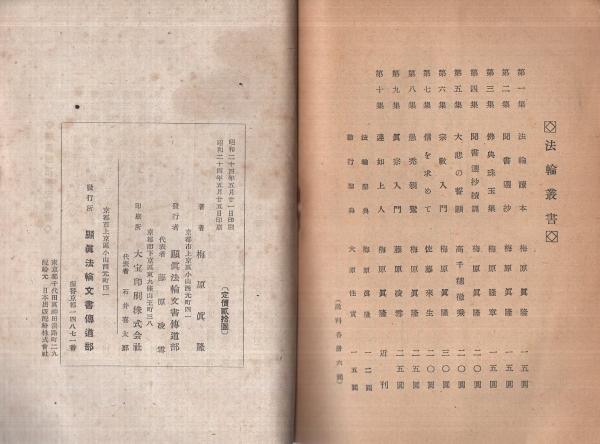 ◇法輪叢書◇
第一集 法輪讀本 梅原眞隆 一五圓
第二集 聞書選抄 梅原眞隆 一五圓
第三集 佛典珠玉集 梅原隆章 一五圓
第四集 聞書選抄續講 梅原眞隆 二〇圓
第五集 大悲の誓願 高千穗徹乘 二〇圓
第六集 宗教入門 梅原眞隆 三〇圓
第七集 信を求めて 佐藤來生 二〇圓
第八集 愚禿親鸞 梅原眞隆 二五圓
第九集 眞宗入門 藤原凌雪 二五圓
第十集 蓮如上人 梅原眞隆 近刊
法輪聖典 梅原眞隆 一二圓
勤行聖典 大原性實 一五圓
(送料各册六圓)
昭和二十四年五月廿一日印刷
昭和二十四年五月廿五日印刷
(定價貳拾圓)
著者 梅原眞隆
京都市上京區小山西元町四一
發行者 顯眞法輪文書傳道部
代表者 藤原凌雪
京都市下京區東九條山王町三八
印刷所 大宝印刷株式会社
代表者 石井喜太郎
京都市上京區小山西元町四一
發行所 顯眞法輪文書傳道部
振替京都一四八七一番
東京都千代田區神田淡路町二ノ九
配給元 日本出版配給株式會社